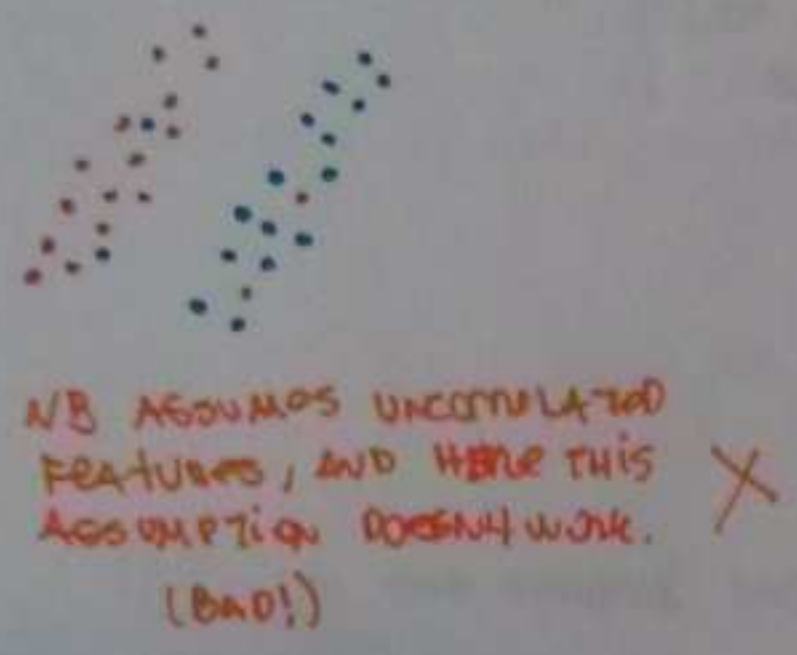 NB ASSUMES UNCORRELATED
FEATURES, AND HERE THIS
ASSUMPTION DOESN'T WORK.
(BAD!)
X